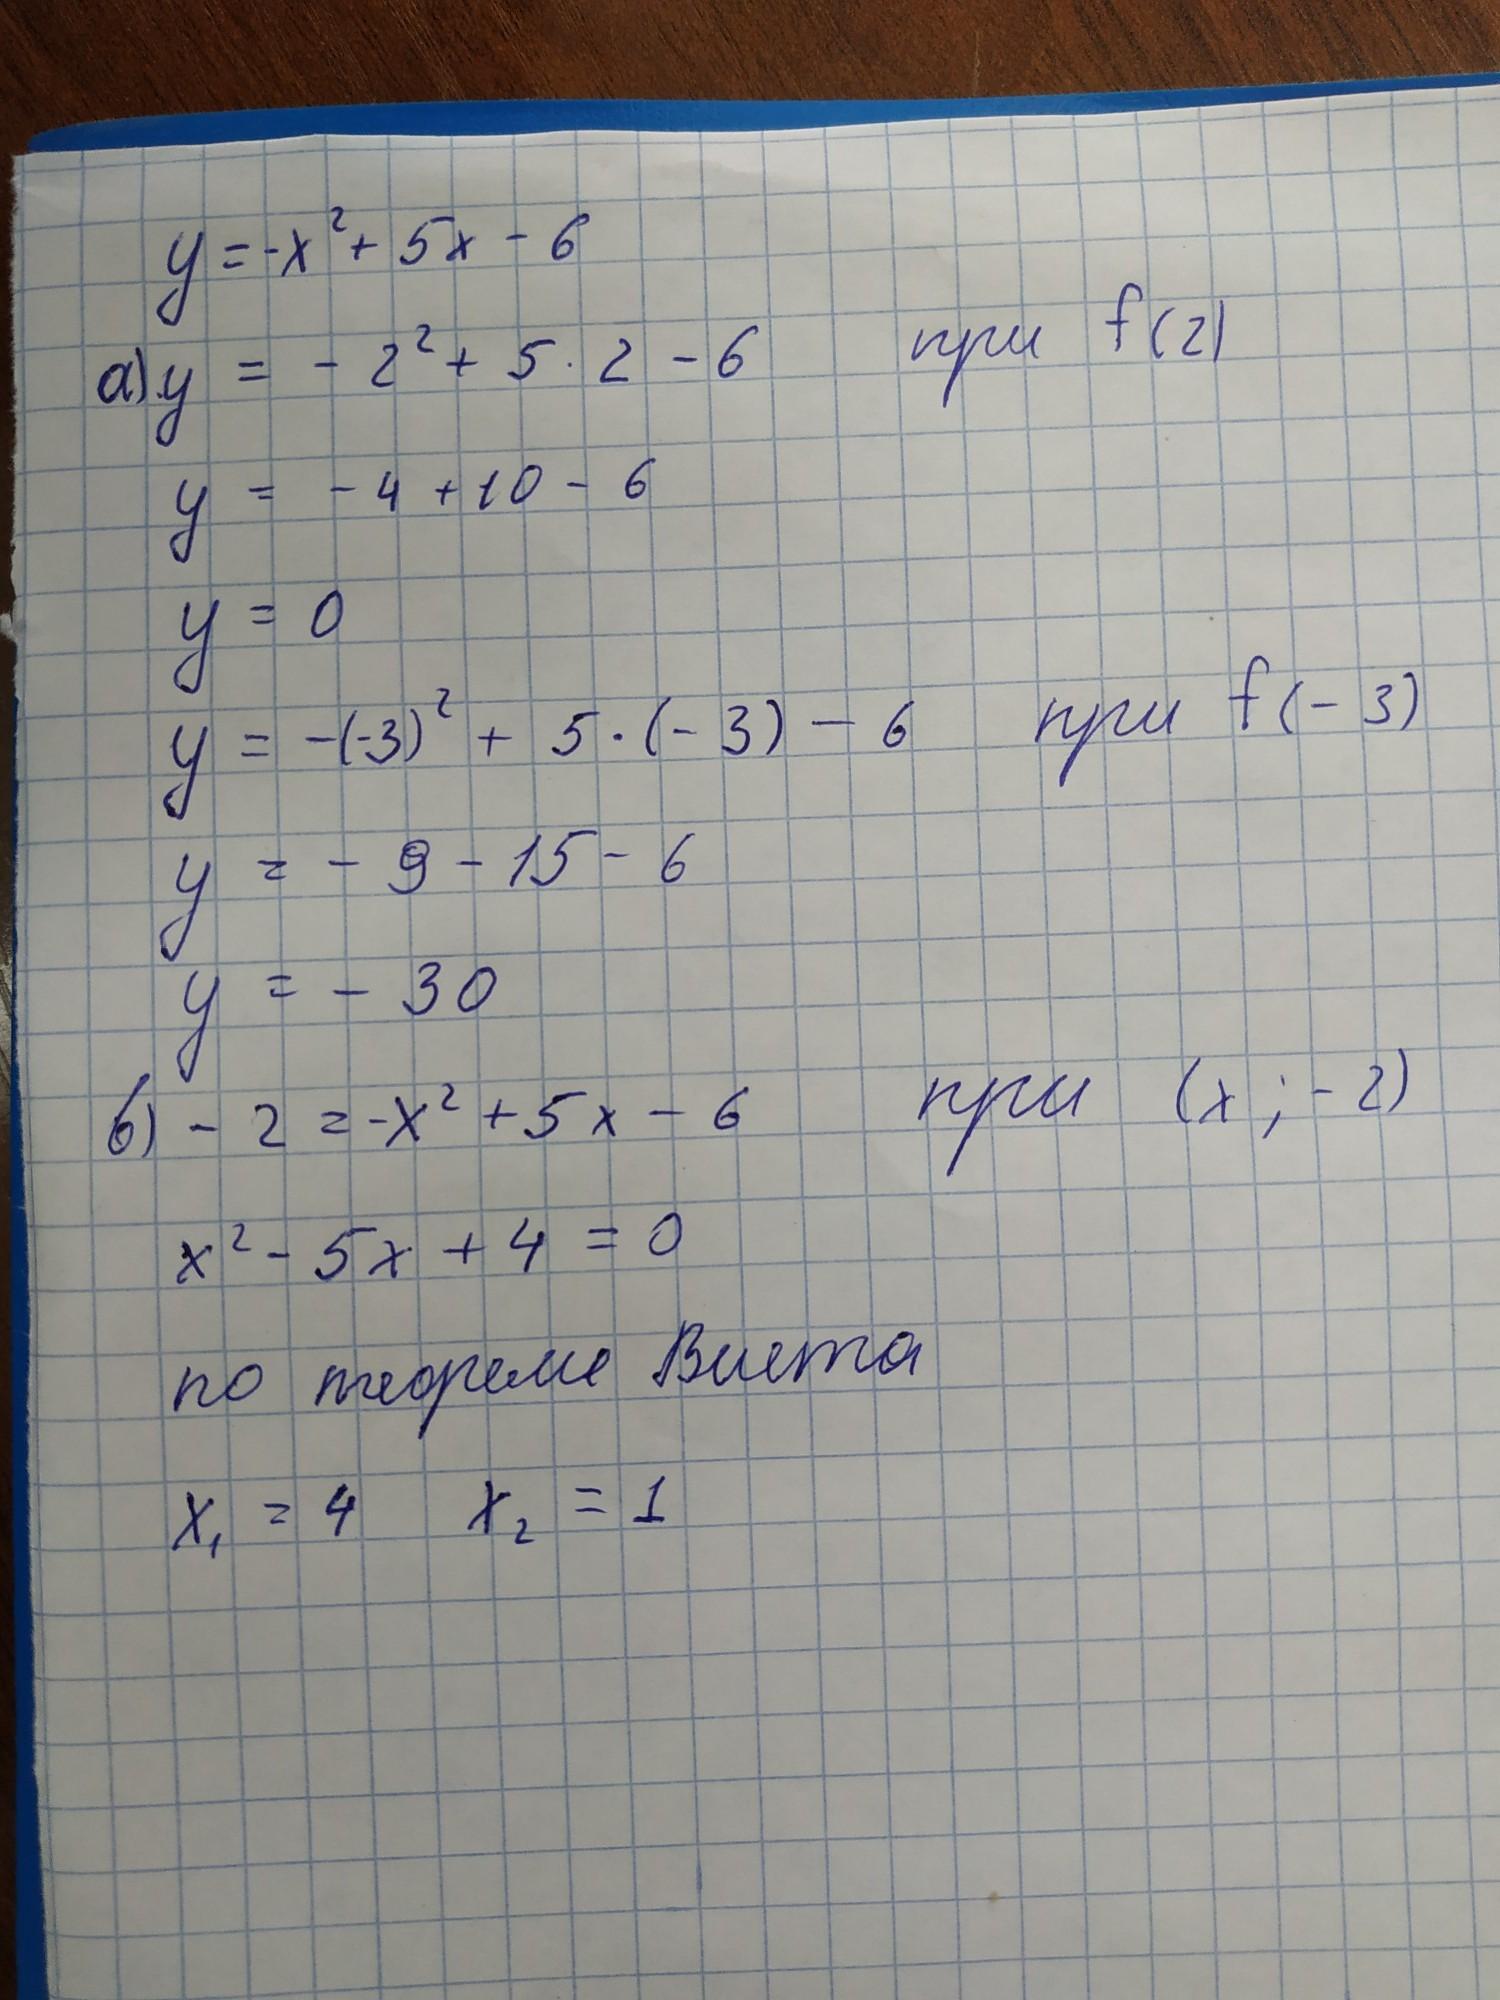 y = -x² + 5x - 6
а) y = - 2² + 5 · 2 - 6 при f(2)
y = - 4 + 10 - 6
y = 0
y = -(-3)² + 5 · (- 3) - 6 при f(- 3)
y = - 9 - 15 - 6
y = - 30
б) - 2 = -x² + 5x - 6 при (x ; - 2)
x² - 5x + 4 = 0
по теореме Виета
x₁ = 4 x₂ = 1